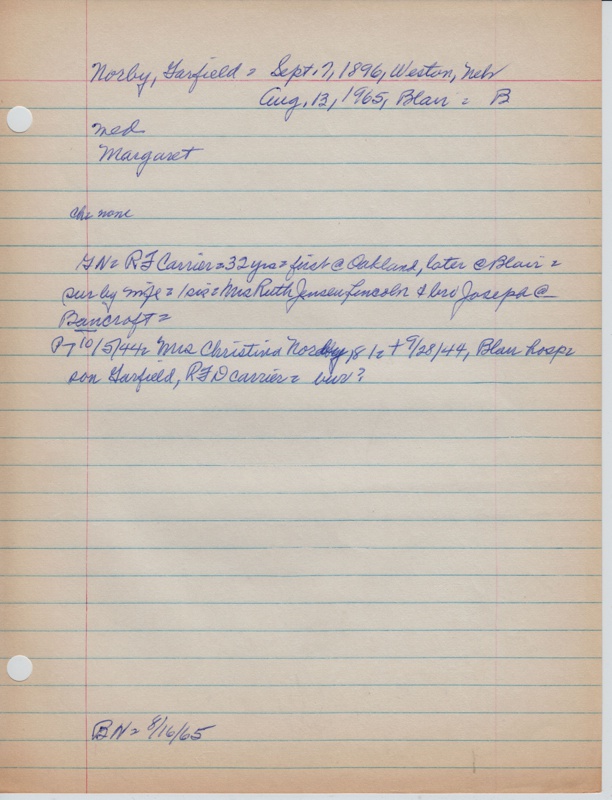 Norby, Garfield = Sept. 7, 1896, Weston, Nebr
Aug. 13, 1965, Blair = B
med
Margaret
chr none
GN = RF Carrier = 32 yrs = first @ Oakland, later @ Blair =
sur by wife = 1 sis = Mrs Ruth Jensen Lincoln & bro Joseph @
Bancroft =
P7 10/5/44 = Mrs Christina Norby, 81 = + 9/28/44, Blair hosp =
son Garfield, RFD carrier = bur?
BN = 8/16/65